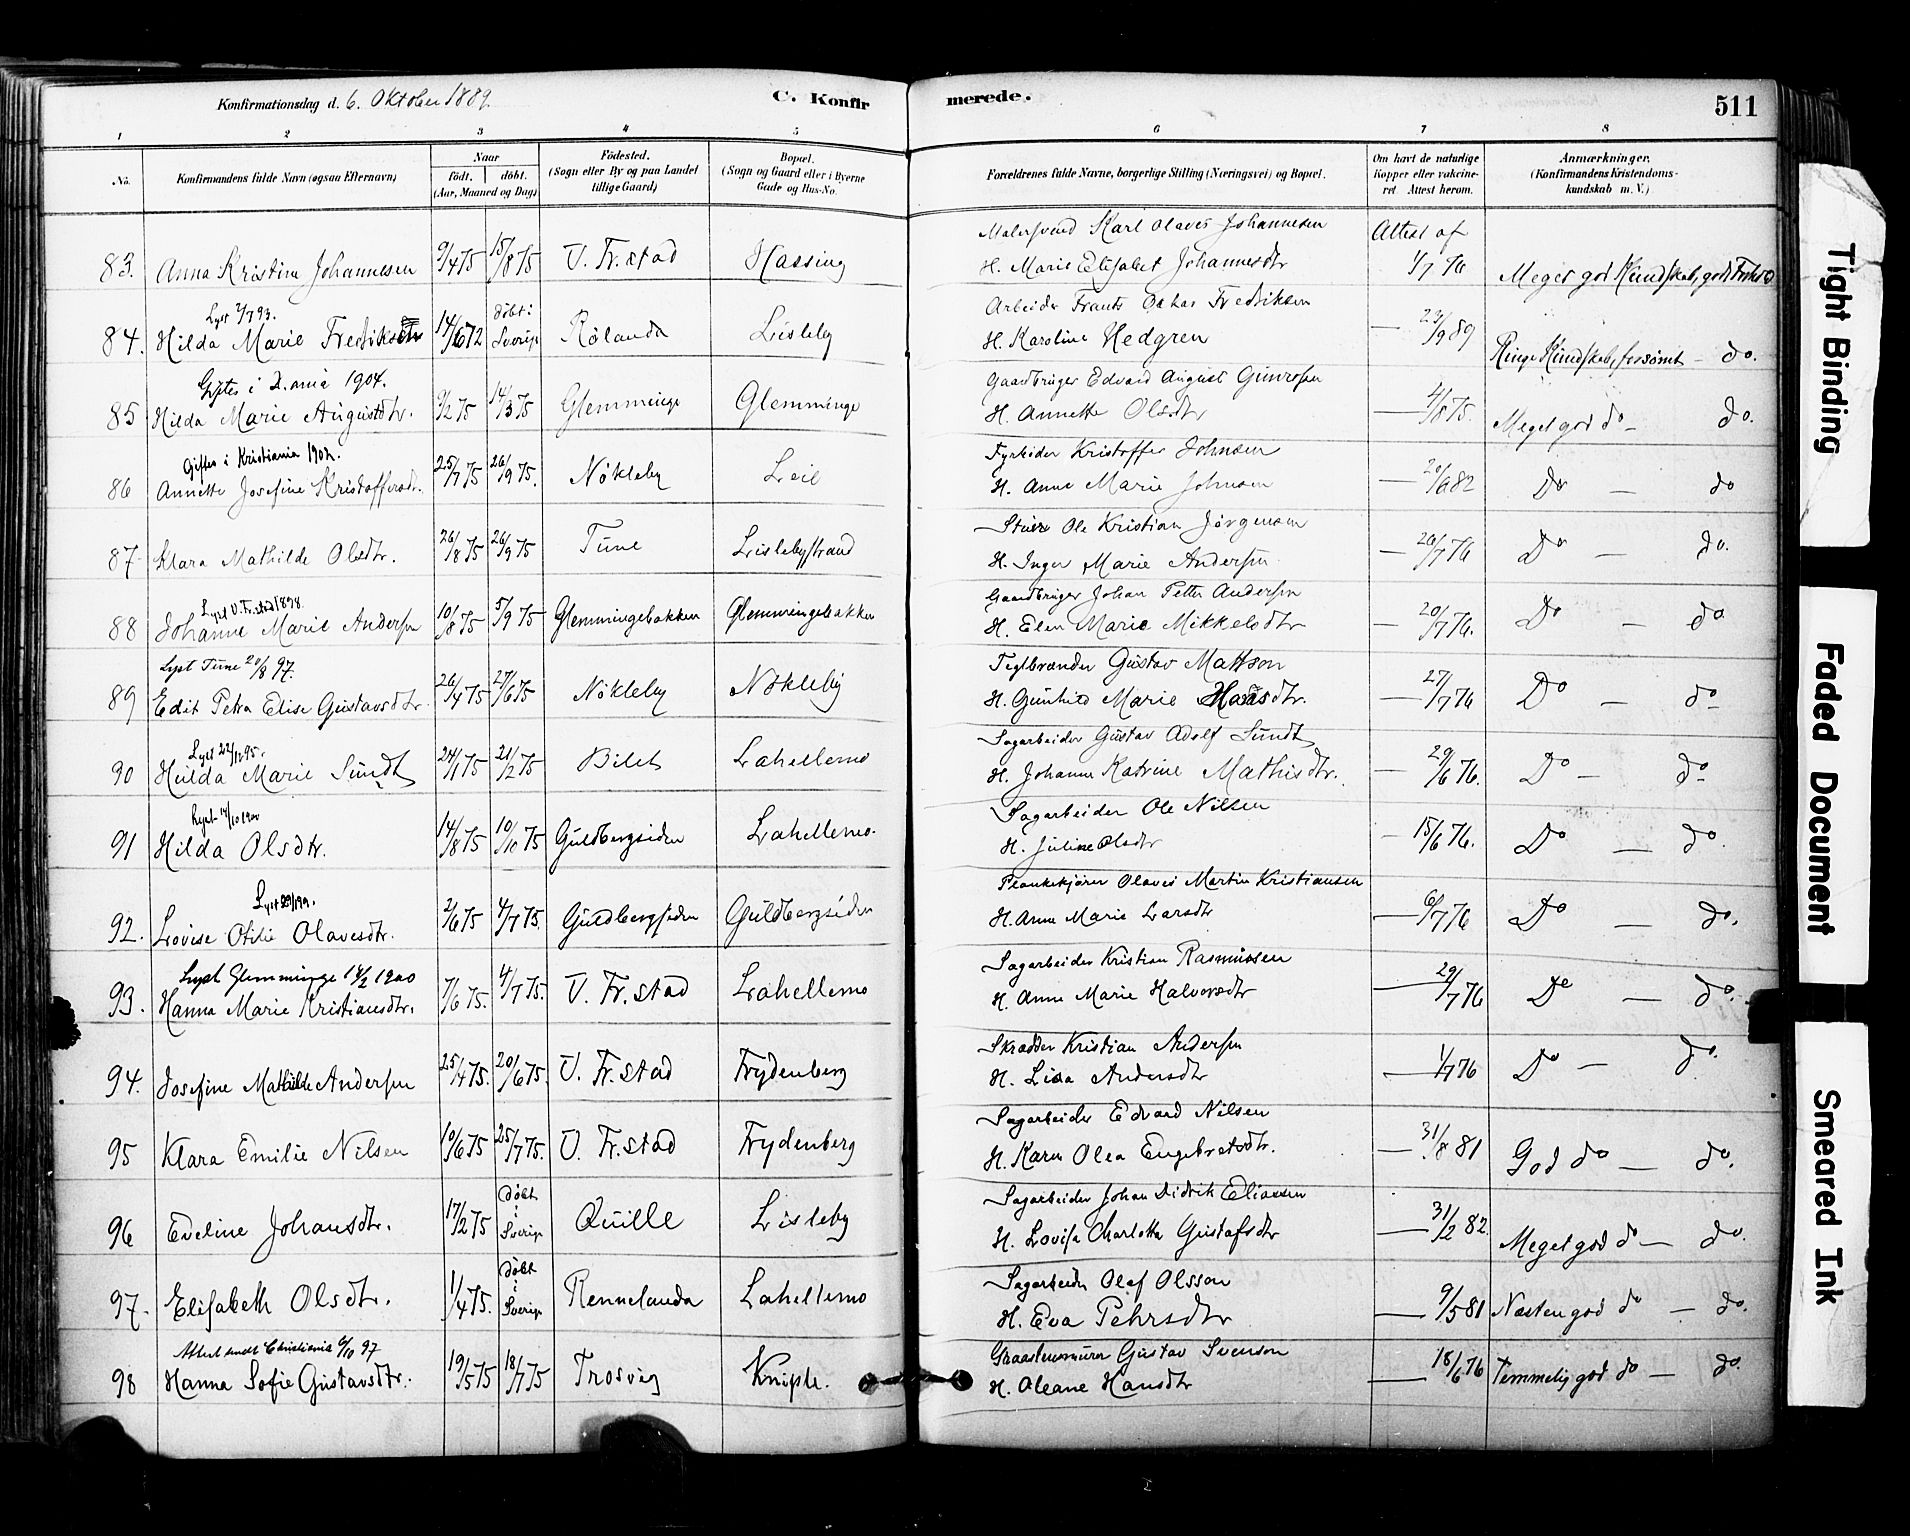 Konfirmationsdag d. 6. Oktober 1889. C. Konfirmerede. 511
1 2 3 4 5 6 7 8
No. Konfirmandens fulde Navn (ogsaa Efternavn) Naar födt. döbt. (Aar, Maaned og Dag) Födested. (Sogn eller By og paa Landet tillige Gaard) Bopæl. (Sogn og Gaard eller i Byerne Gade og Hus-No. Forældrenes fulde Navne, borgerlige Stilling (Næringsvei) og Bopæl. Om havt de naturlige Kopper eller vakcineret. Attest herom. Anmærkninger. (Konfirmandens Kristendomskundskab m. V.)
Malersvend Karl Olaves Johannesen Attest af
83. Anna Kristine Johannesen 9/4 75 15/8 75 V. Fr.stad Hassing H. Marie Elisabet Johannesdtr 1/7 76 Meget god Kundskab, god
Lyst 2/7 93. döbt i Arbeider Frants Oskar Fredriksen
84. Hilda Marie Fredriksdtr 14/6 72 Sverige Rölanda Lisleby H. Karoline Hedgren — 23/9 89 Ringe Kundskab, forsömt — do.
Giftes i X.ania 1904. Gaardbruger Edvard August
85 Hilda Marie Augustdtr. 9/2 75 14/3 75 Glemminge Glemminge H. Annette Olsdtr — 4/8 75. Meget god do — do.
Giftes i Kristiania 1902. Fyrböder Kristoffer Johnsen
86 Annette Josefine Kristoffersdtr. 25/7 75 26/9 75. Nökleby Leie H. Anne Marie Johnsen — 20/6 82 Do — do
Ole Kristian Jörgensen
87 Klara Mathilde Olsdtr. 26/8 75 26/9 75 Tune Lislebystrand H. Inger Marie Andersen — 20/7 76 Do — do.
Lyst V. Fr.stad 1898. Gaardbruger Johan Petter Andersen
88 Johanne Marie Andersen 10/8 75 5/9 75 Glemmingebakken Glemmingebakken H. Elen Marie Mikkelsdtr — 20/7 76. Do — do
Lyst Tune 20/8 97. Teglbrænder Gustav Mattson
89 Edit Petra Elise Gustavsdtr. 26/4 75 27/6 75 Nökleby Nökleby H. Gunhild Marie Hansdtr. — 27/7 76 Do — do
Lyst 22/12 95. Sagarbeider Gustav Adolf Sundt
90 Hulda Marie Sundt 24/1 75 21/2 75 Bilet Lahellemo H. Johanne Katrine Mathisdtr. — 29/6 76. Do — do
Lyst 14/10 1900 Sagarbeider Ole Nilsen
91 Hilda Olsdtr. 14/8 75 10/10 75 Guldbergsiden Lahellemo. H. Juline Olsdtr — 15/6 76. Do — do.
Lyst Plankekjörer Olaves Martin Kristiansen
92. Lovise Otilie Olavesdtr. 2/6 75 4/7 75. Guldbergsiden Guldbergsiden H. Anne Marie Larsdtr — 6/7 76 Do — do.
Lyst Glemminge 14/2 1900 Sagarbeider Kristian Rasmussen
93. Hanna Marie Kristiansdtr. 7/6 75. 4/7 75. V. Fr.stad Lahellemo H. Anne Marie Halvorsdtr — 29/7 76 Do — do.
Skrædder Kristian Andersen
94. Josefine Mathilde Andersen 25/4 75. 20/6 75. V. Fr.stad Frydenberg H. Lisa Andersdtr — 1/7 76 Do — do.
Sagarbeider Edvard Nilsen
95 Klara Emilie Nilsen 10/6 75 25/7 75. V. Fr.stad Frydenberg H. Karen Olea Engebretsdtr. — 31/8 81 God do — do.
döbt i Sagarbeider Johan Didrik Eliassen
96 Eveline Johansdtr. 17/2 75 Sverige Quille Lisleby H. Lovisa Charlotta Gustafsdtr — 31/2 82. Meget god do — do.
döbt i Sagarbeider Olof Olsson
97. Elisabeth Olsdtr. 1/4 75. Sverige Rennelanda Lahellemo H. Eva Pehrsdtr — 9/5 81 Næsten god do — do.
Attest sendt Christiania 6/10 97 Graastensmurer Gustav Svenson
98 Hanna Sofie Gustavsdtr. 19/5 75 18/7 75 Trosvig Kniple. H. Oleane Hansdtr — 18/6 76 Temmelig god do — do.
Tight Binding
Faded Document
Smeared Ink